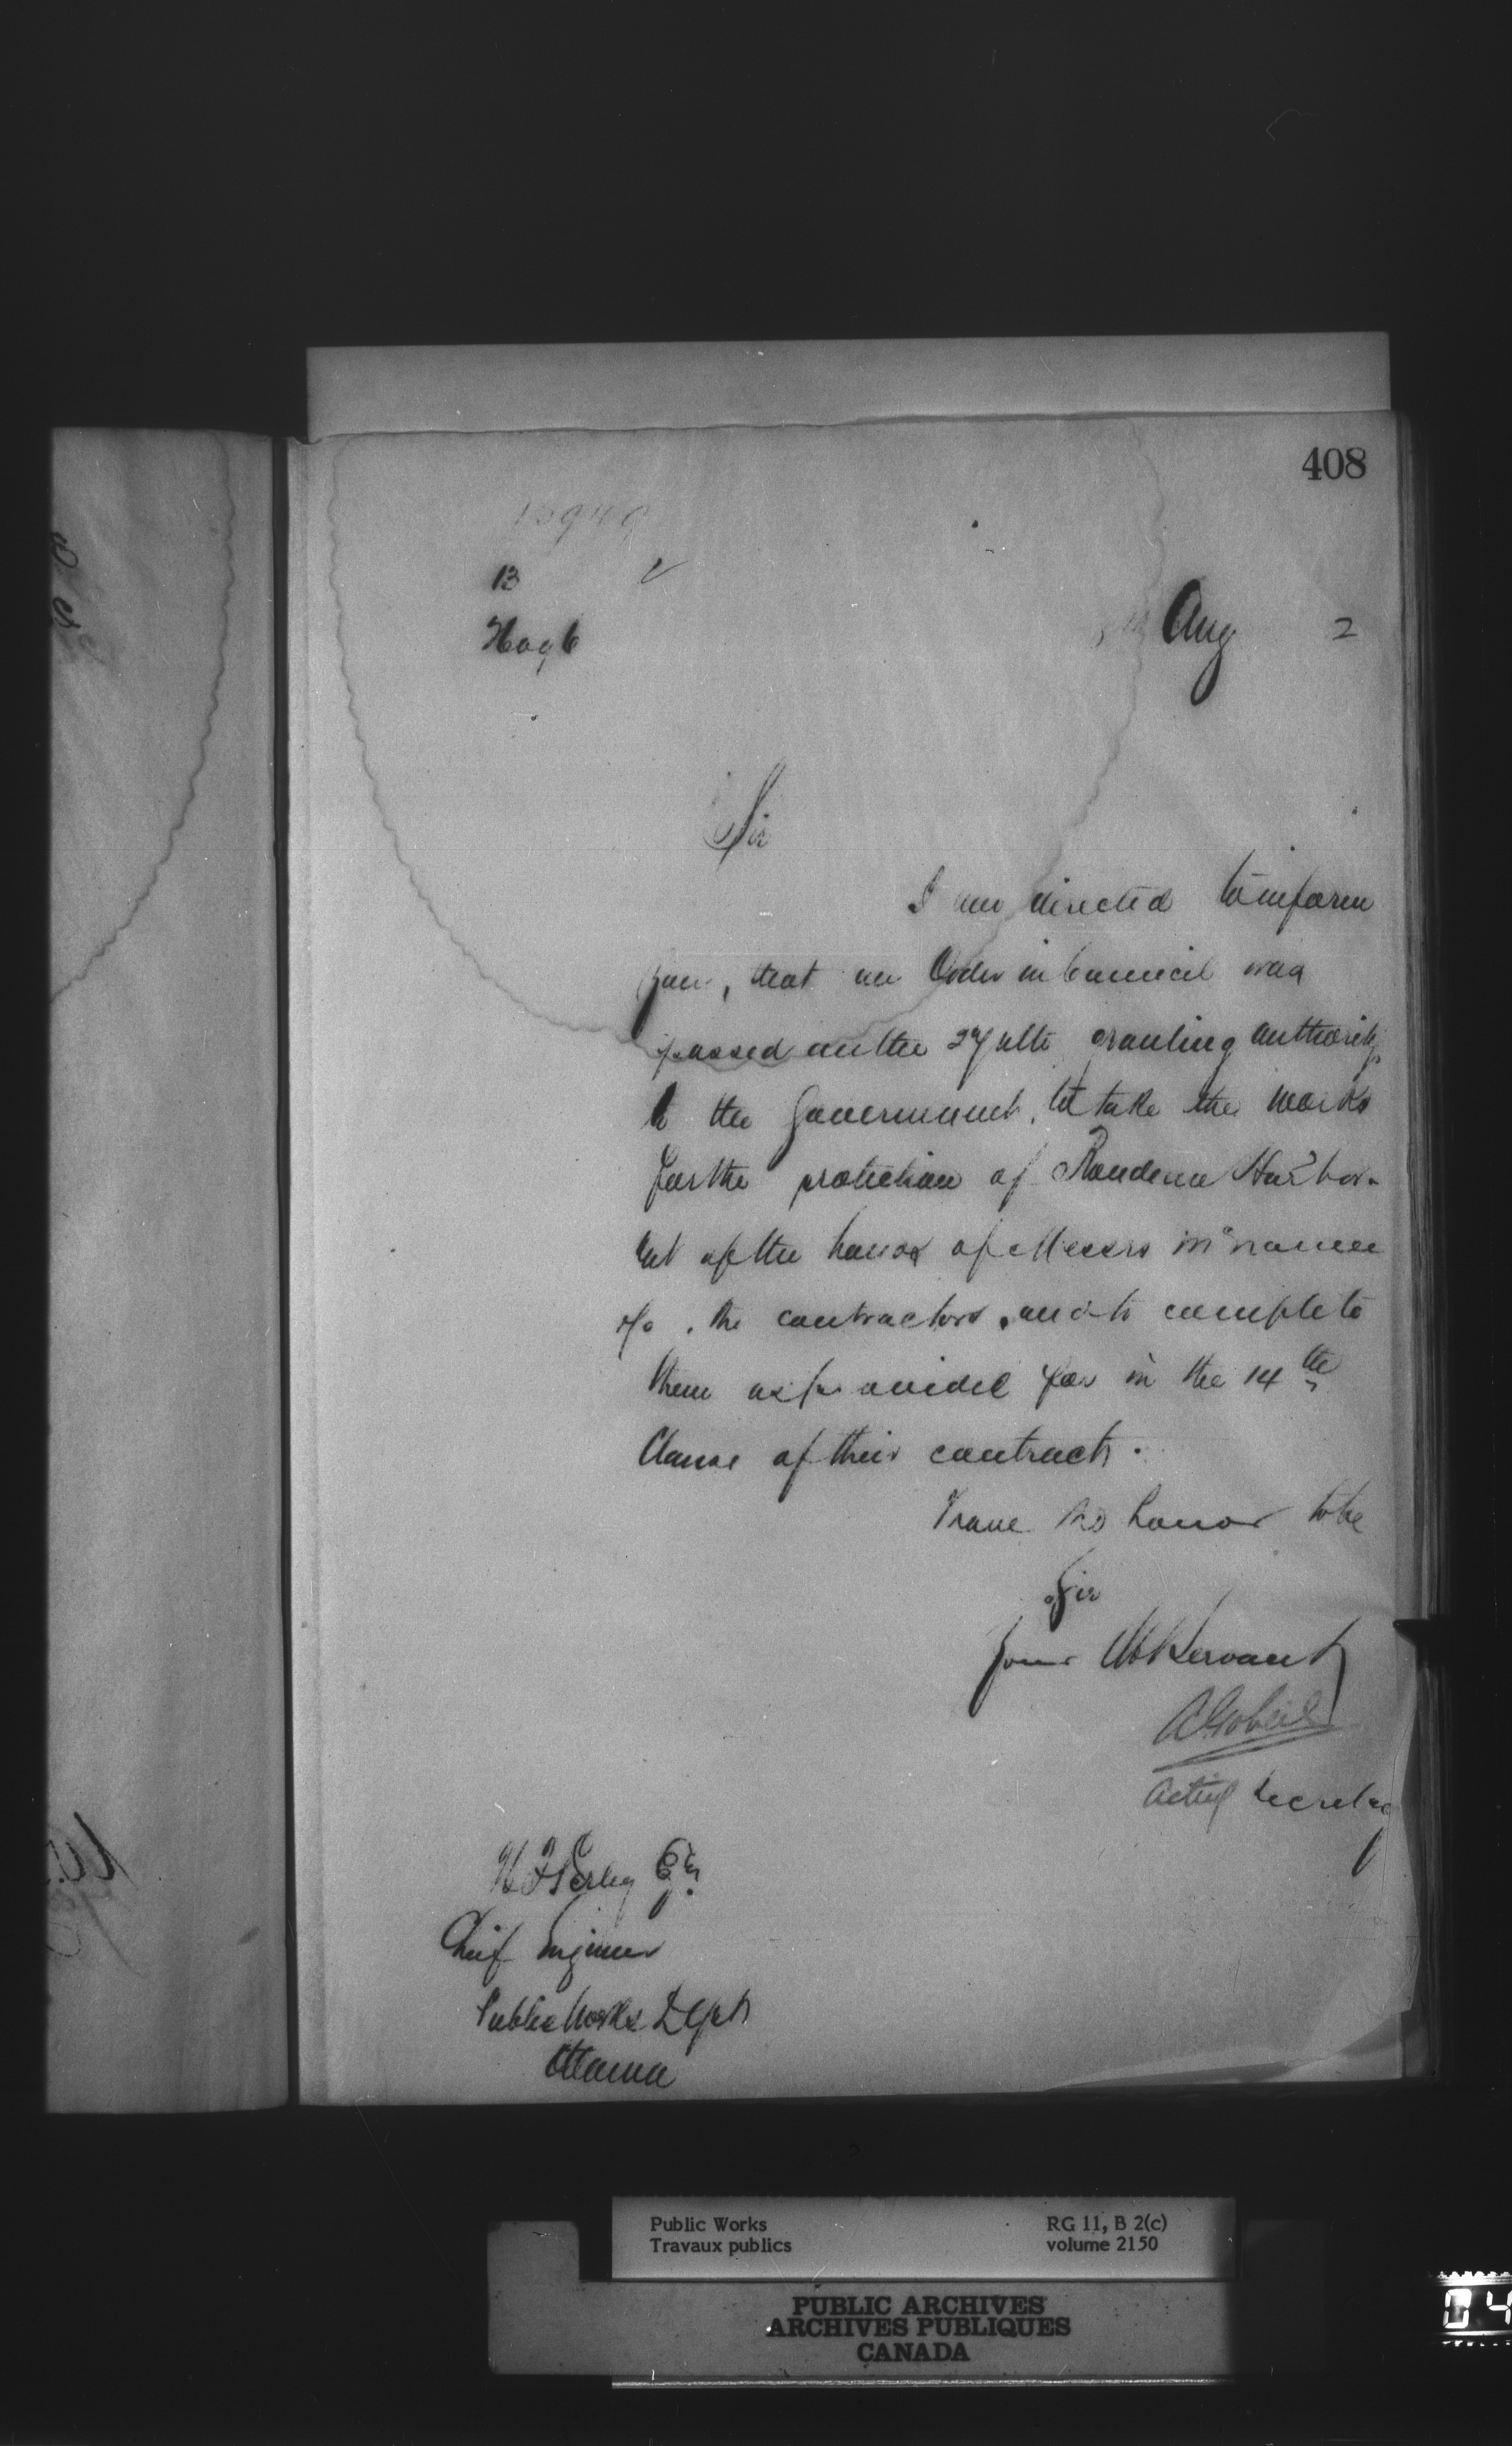 408
13
Aug 2
Sir
I am directed to inform
you, that an Order in Council was
passed on the 27 ulto granting authority
to the Government, to take the works
for the protection of Rondeau Harbor
out of the hands of Messrs
& Co, the contractors, and to complete
them as provided for in the 14th
Clause of their contract.
I have the honor to be
Sir
Your Obt Servant
A Gobeil
Acting Secretary
H F Perley Esq.
Chief Engineer
Public Works Dept
Ottawa
Public Works RG 11, B 2(c)
Travaux publics volume 2150
PUBLIC ARCHIVES
ARCHIVES PUBLIQUES
CANADA
04